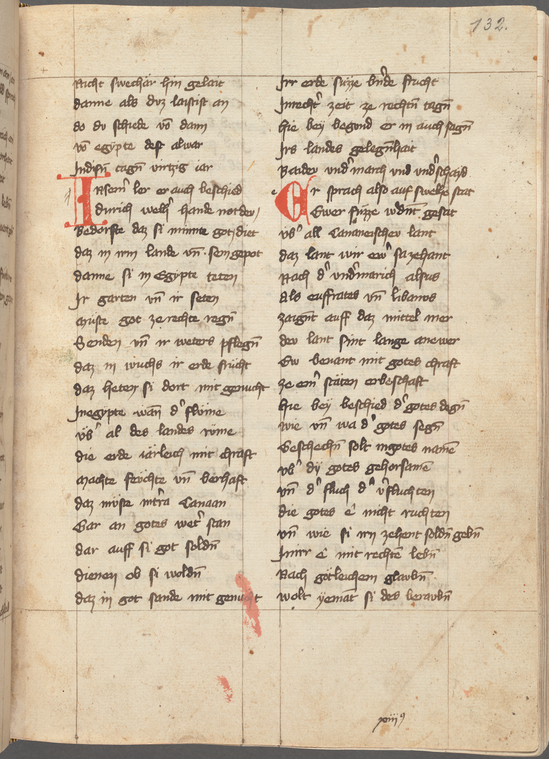 132.
Nicht swechar hin gelait
danne als duz laistist an
do du schiede vō dann
vō egypte des alwar
Indisn̄ tagn̄ virtzig iar
Irsem ler er auch beschied
durich welh̾ hande not der
bedorfte daz si minnte got diet
daz in irm lande vn̄ sein gepot
danne si in Egypte teten
Ir garten vn̄ ir seten
muste got ze rechte regn̄
Senden vn̄ ir weters pflegn̄
daz in wuchs ir erde frucht
daz heten si dort mit genucht
Inegypte wan̄ d̾ flōme
vb̾ al des landes rōme
die erde iärleich mit chraft
machte frūchte vn̄ berhaft
daz mūste Canaan
Gar an gotes wer̾ stan
dar auff si got soldn̄
dienen ob si woldn̄
daz in got sande mit genucht
Irr erde sūzze vn̄de frucht
Inrecht̾ zeit ze rechtn̄ tagn̄
hie bey begond er in auch sagn̄
Irs landes gelegn̄hait
Baider vnd̾march vnd vnd̾schaid
Er sprach also auf swelhe stat
Ewer fūzze wdn̄t gesat
vb̾ all Cananeischew lant
daz lant wir ew̾ sazehant
Nach d̾ vnd̾march alsus
Als euffrates vn̄ libanus
zaignt auff daz mittel mer
dev lant sint lange anewer
Ew benant mit gotes chraft
ze ein̾ stäten erbeschaft
hie bey beschied d̾ gotes degn̄
wie vn̄ wa d̾ gotes segn̄
Geschechn̄ solt ingotes namē
vb̾ dy gotes gehorsamē
vn̄ d̾ fluch d̾ v̾fluchten
die gotes ē nicht ruchten
vn̄ wie si irn zehent soldn̄ gebn̄
Inirr ē mit rechtē lebn̄
Nach gōtleichem glaubn̄
wolt yemāt si des beraubn̄